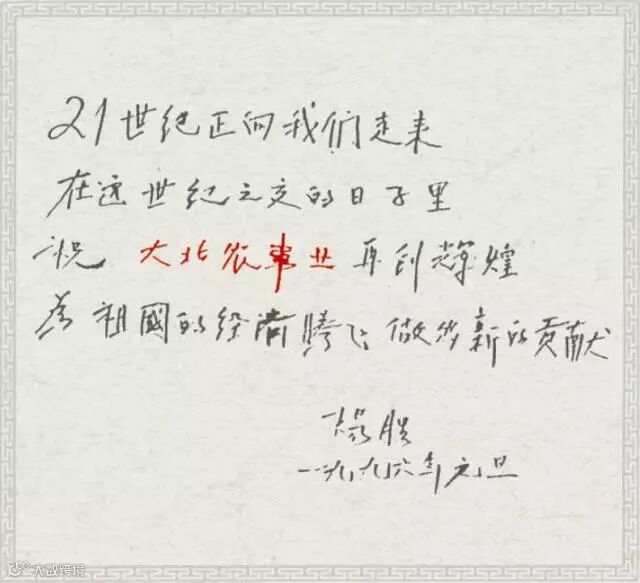 21世纪正向我们走来
在这世纪之交的日子里
祝 大北农事业 再创辉煌
为祖國的经济腾飞做出新的贡献
一九九六年元旦
大数跨境